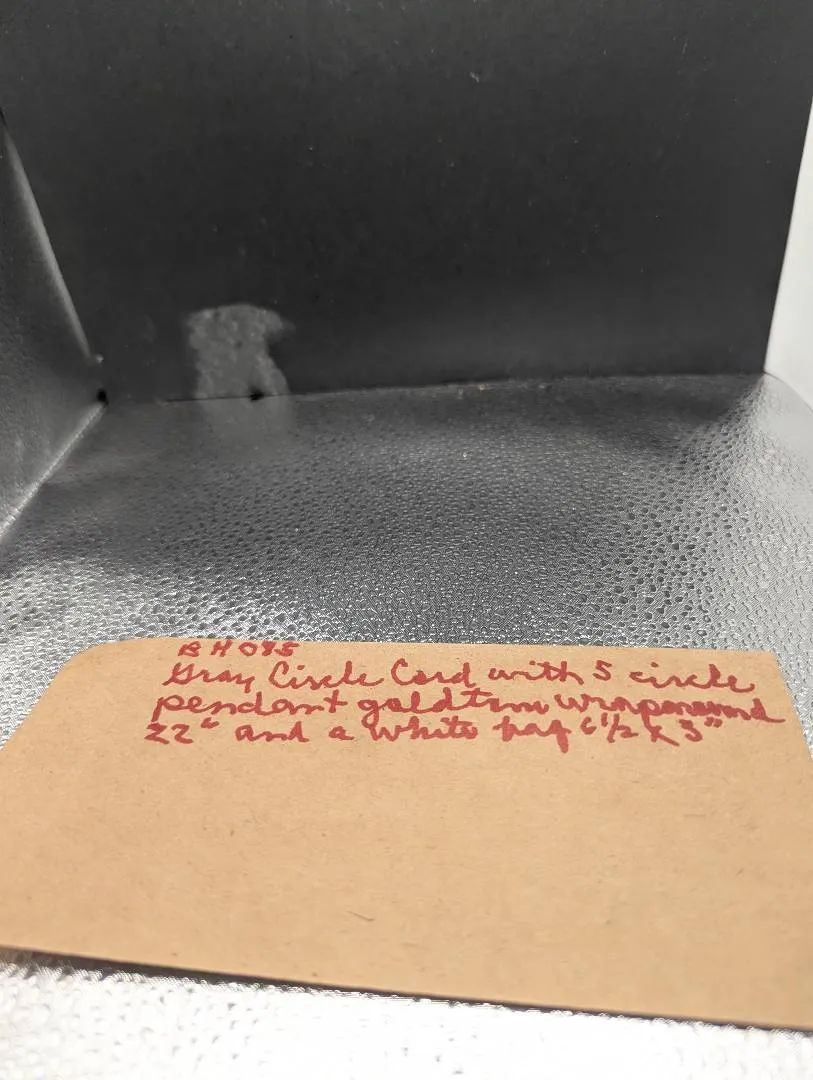 BH085
Gray Circle Cord with 5 circle
pendant goldtone wraparound
22" and a white 6 1/2 x 3"